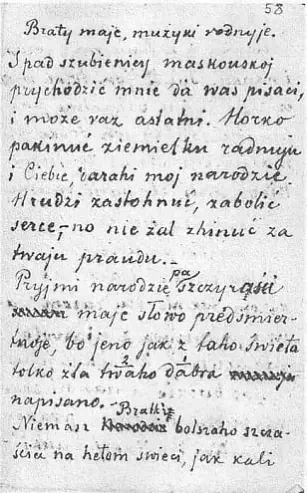 58
Braty maje, mużyki rodnyje.
I pad szubienicy maskouskoj
prychodzić mnie da was pisaci,
i może raz astatni. Horko
pakinuć ziemielku radnuju
i Ciebie, darahi moj narodzie
Hrudzi zastohnuć, zabolić
serce, – no nie żal zhinuć za
twaju praudu. –
Pryjmi narodzie pa szczyraści
maje słowo predśmier-
tnoje, bo jeno jak z taho świeta
tolko dla twaho dabra
napisano. –
Bratkie
Niemasz bolszaho szcza-
ścia na hetom świeci, jak kali